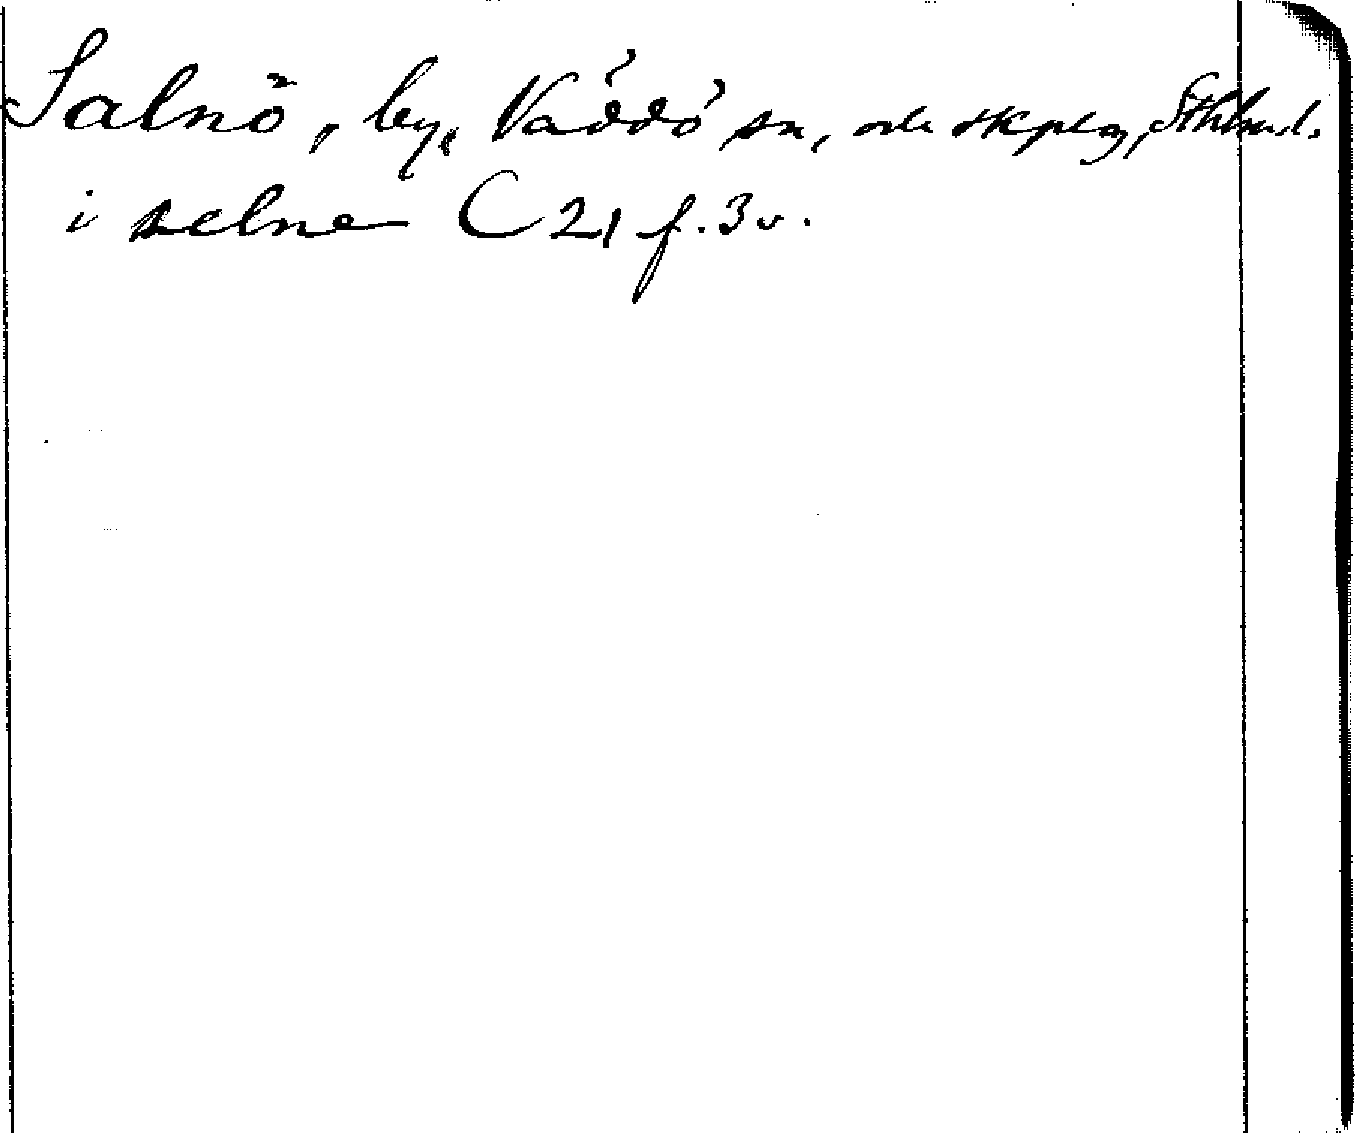 Salnö, by, Väddö sn, och skplag, Sthlms l.
i selne C 21 f. 3 v.